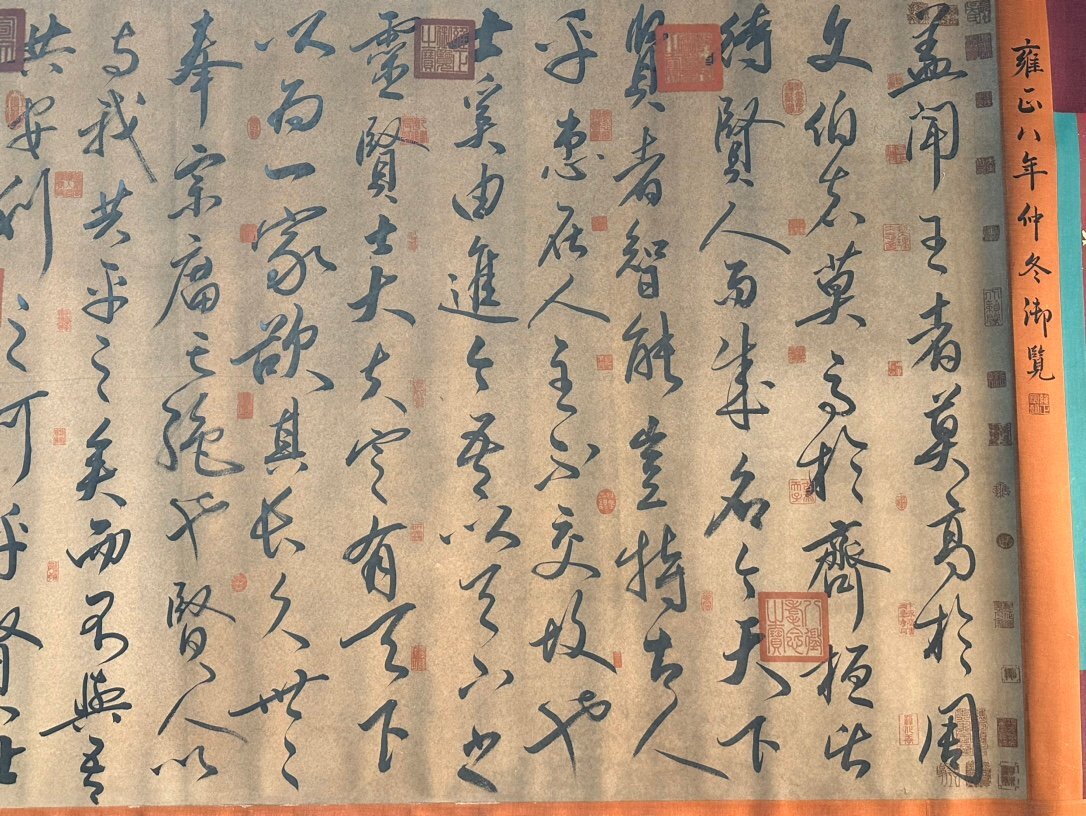 雍正八年仲冬御覽
盖聞王者莫高於周
文伯者莫高於齊桓皆
待賢人而成名今天下
賢者智能豈特古人
乎患在人主不交故也
士奚由進今吾以天之
靈賢士大夫定有天下
以為一家欲其長久世世
奉宗廟亡絕也賢人以
与我共平之矣而不與吾
共安利之可乎賢士